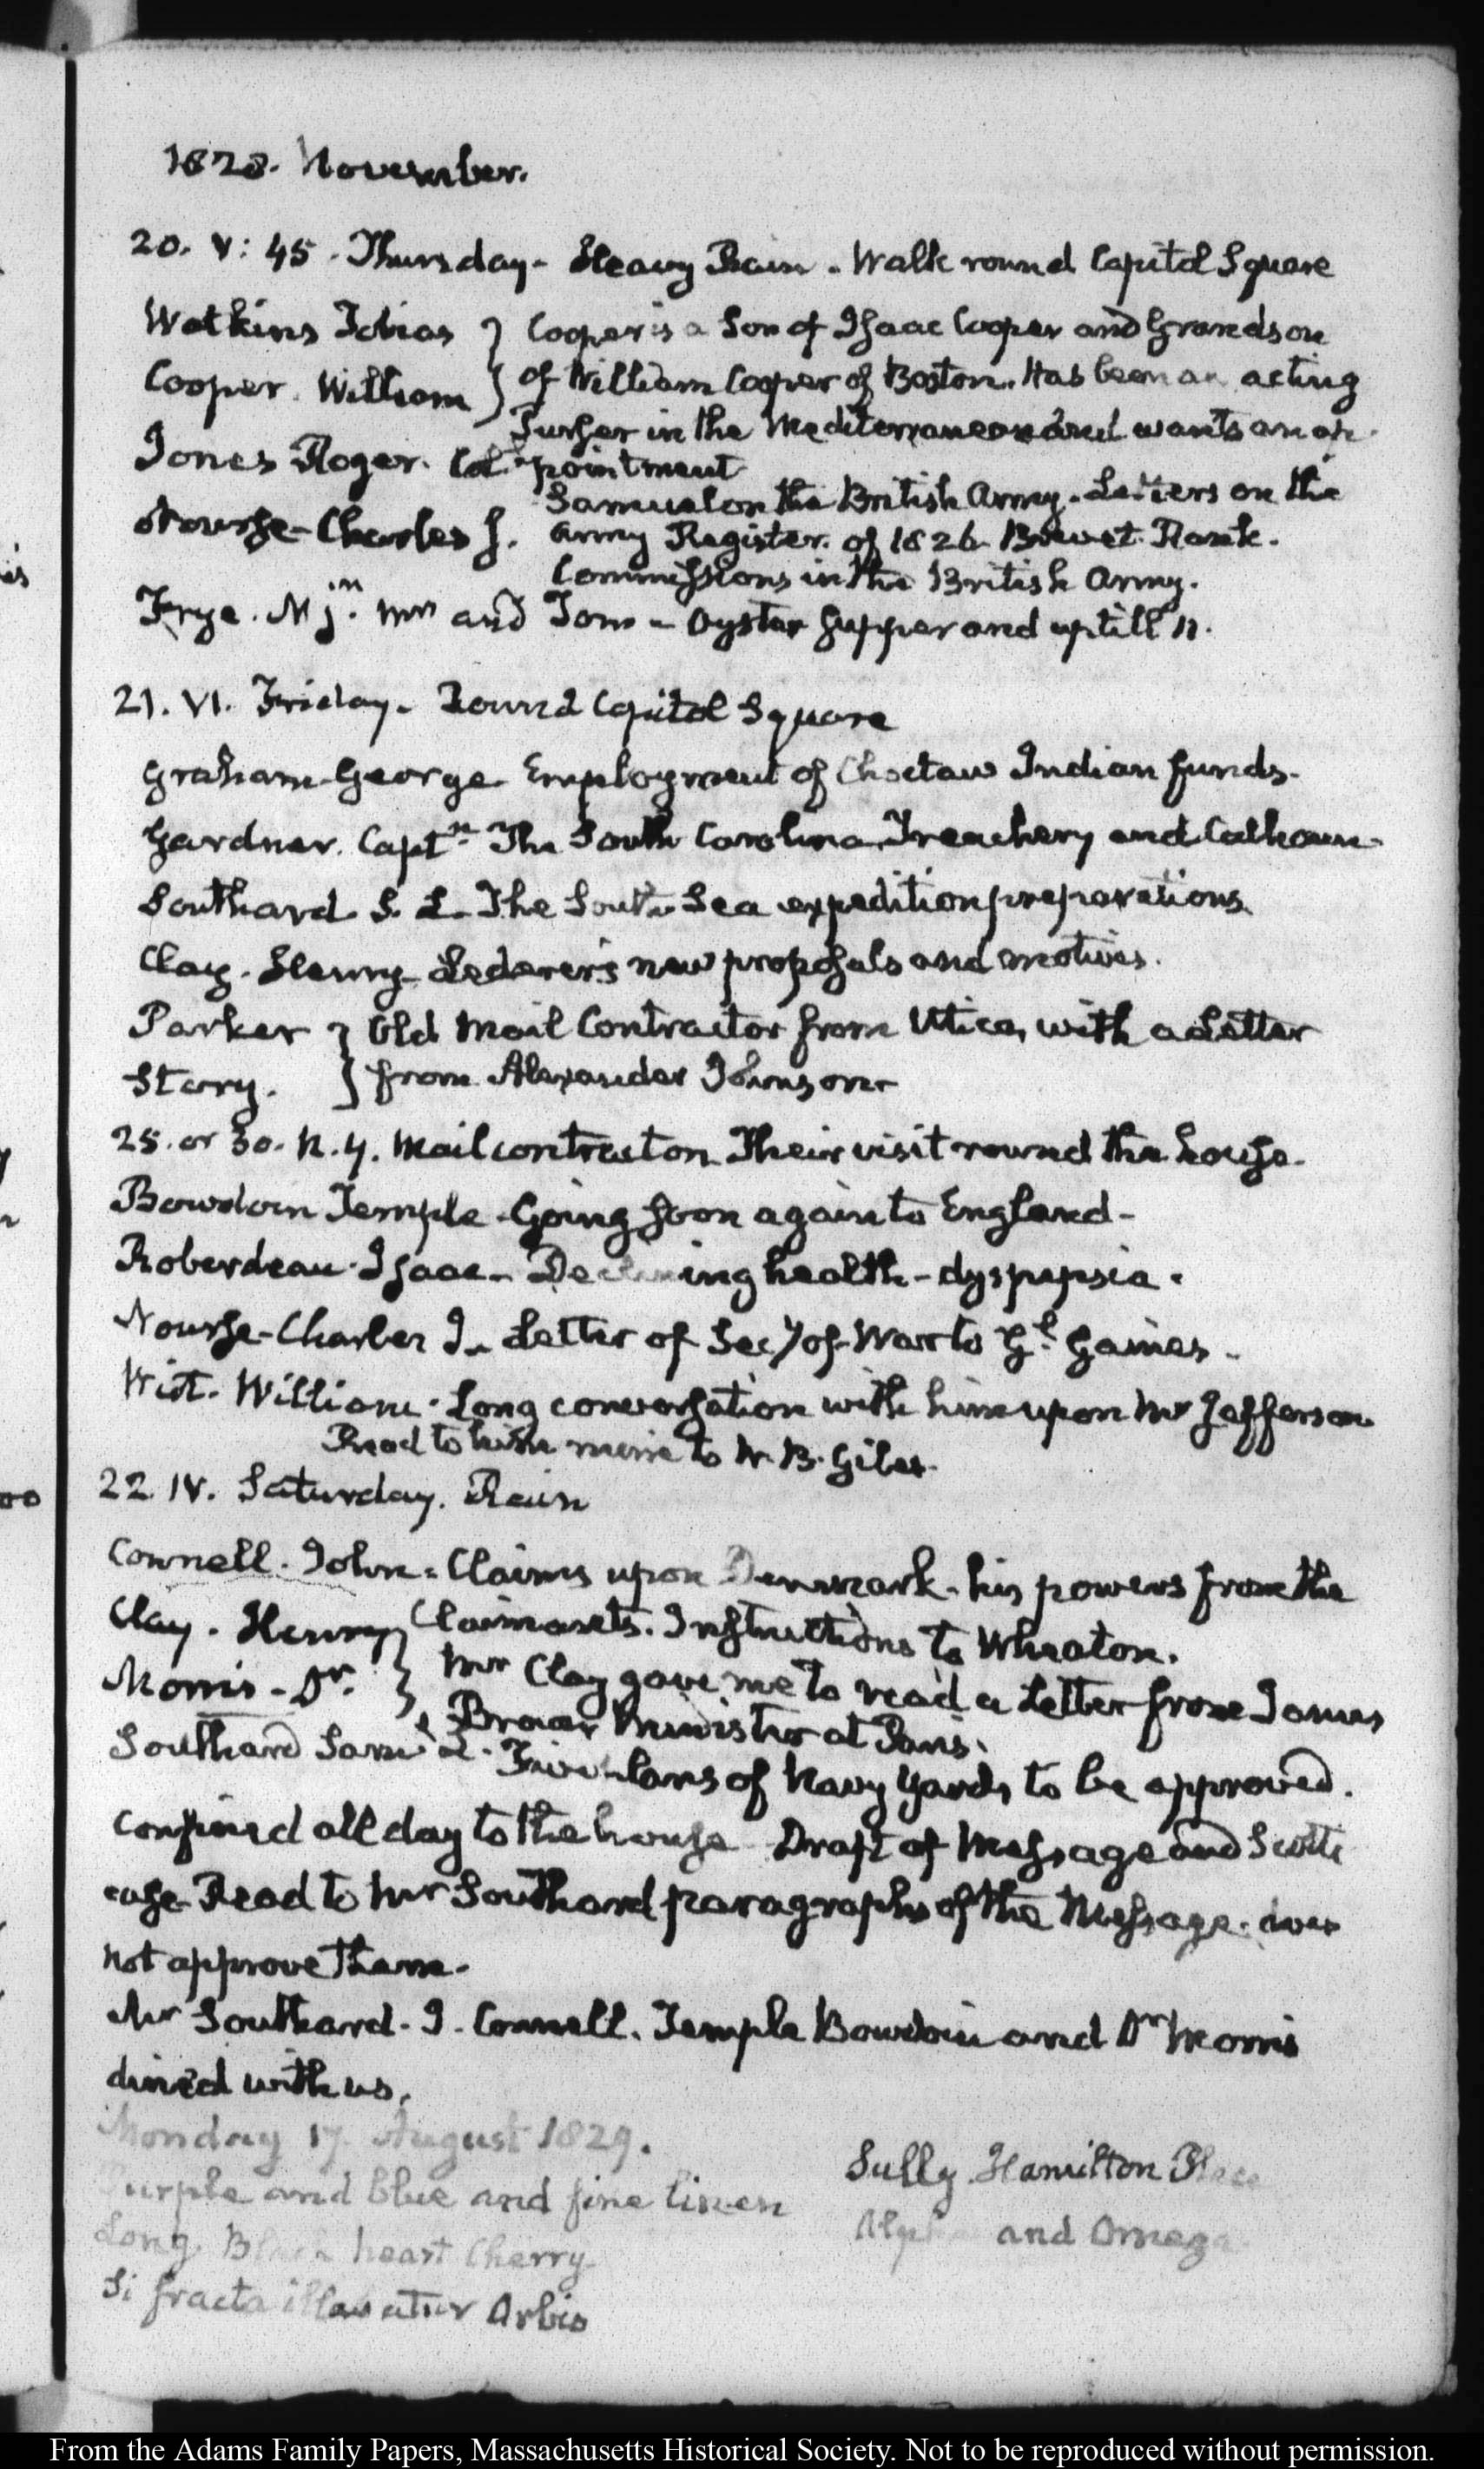 1828. November.
20. V: 45. Thursday- Heavy Rain. Walk round Capitol Square
Watkins Tobias } Cooper is a Son of Isaac Cooper and Grandson
Cooper. William } of William Cooper of Boston. Has been an acting
Purser in the Mediterranean and wants an ap-
Jones Roger. Col. pointment
Samuel on the British Army. Letters on the
Nourse- Charles J. Army Register. of 1826 Brevet Rank.
Commissions in the British Army.
Frye. N j.n Mrs and Tom - Oyster supper and up till 11.
21. VI. Friday. Round Capitol Square
Graham George Employment of Choctaw Indian funds.
Gardner. Captn. The South Carolina Treachery and Calhoun.
Southard. S. L. The South Sea expedition preparations.
Clay. Henry- Lederer's new proposals and motives.
Parker } Old Mail Contractor from Utica, with a Letter
Story. } from Alexander Johnson
25. or 30. N. Y. Mail contractors Their visit round the house.
Bowdoin Temple. Going soon again to England-
Roberdeau. Isaac- Declining health- dyspepsia.
Nourse- Charles J. Letter of Secy of War to Gl. Gaines.
Wirt. William. Long conversation with him upon Mr Jefferson
Read to him mine to W. B. Giles.
22. IV. Saturday. Rain
Connell. John- Claims upon Denmark- his powers from the
Clay. Henry } Claimants. Instructions to Wheaton.
Morris- Dr. } Mr Clay gave me to read a Letter from James
Brown Minister at Paris.
Southard Saml L. Five plans of Navy Yards to be approved.
Confined all day to the house Draft of Message and Scott's
case- Read to Mr Southard paragraphs of the Message. does
not approve them.
Mr Southard. J. Connell. Temple Bowdoin and Dr Morris
dined with us.
Monday 17. August 1829.
Purple and blue and fine linen
Sully Hamilton Place
Long. Black heart Cherry
Alpha and Omega
Si fractus illabatur Orbis